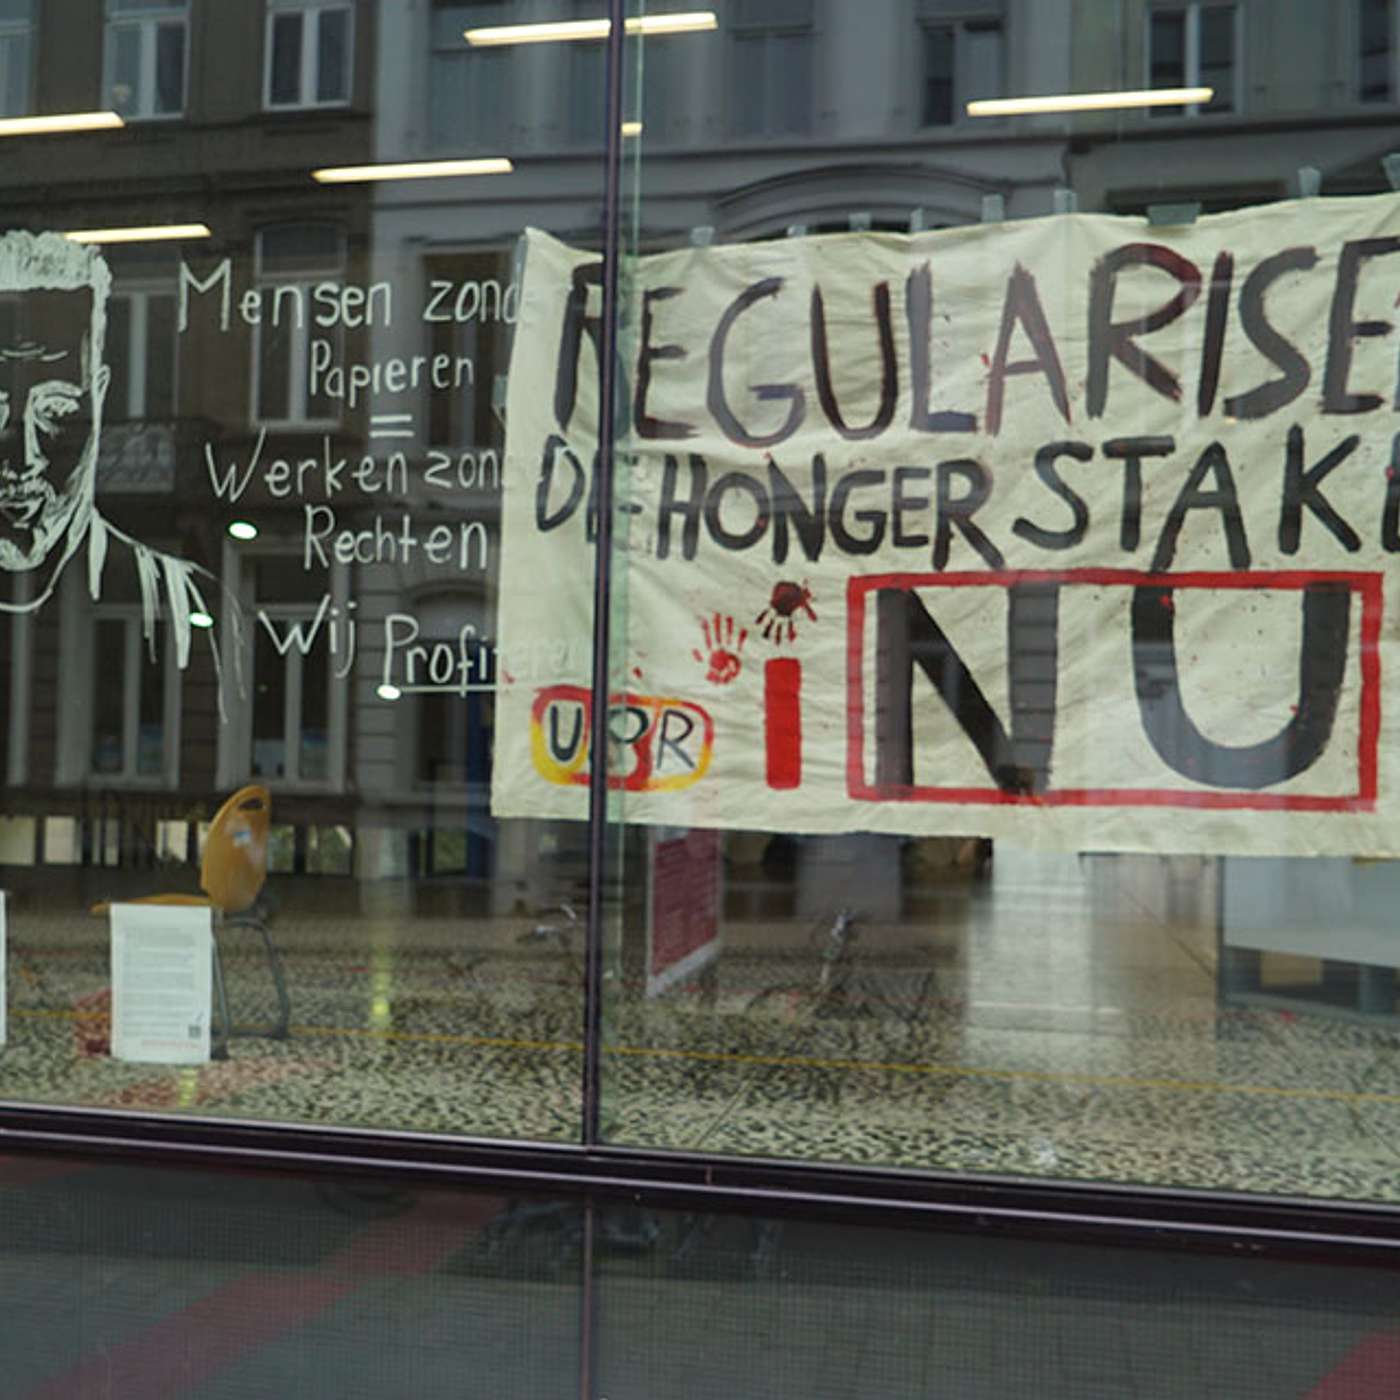 Mensen zond
Papieren
=
Werken zon
Rechten
Wij Profi
REGULARISE
DE HONGERSTAKE
NU